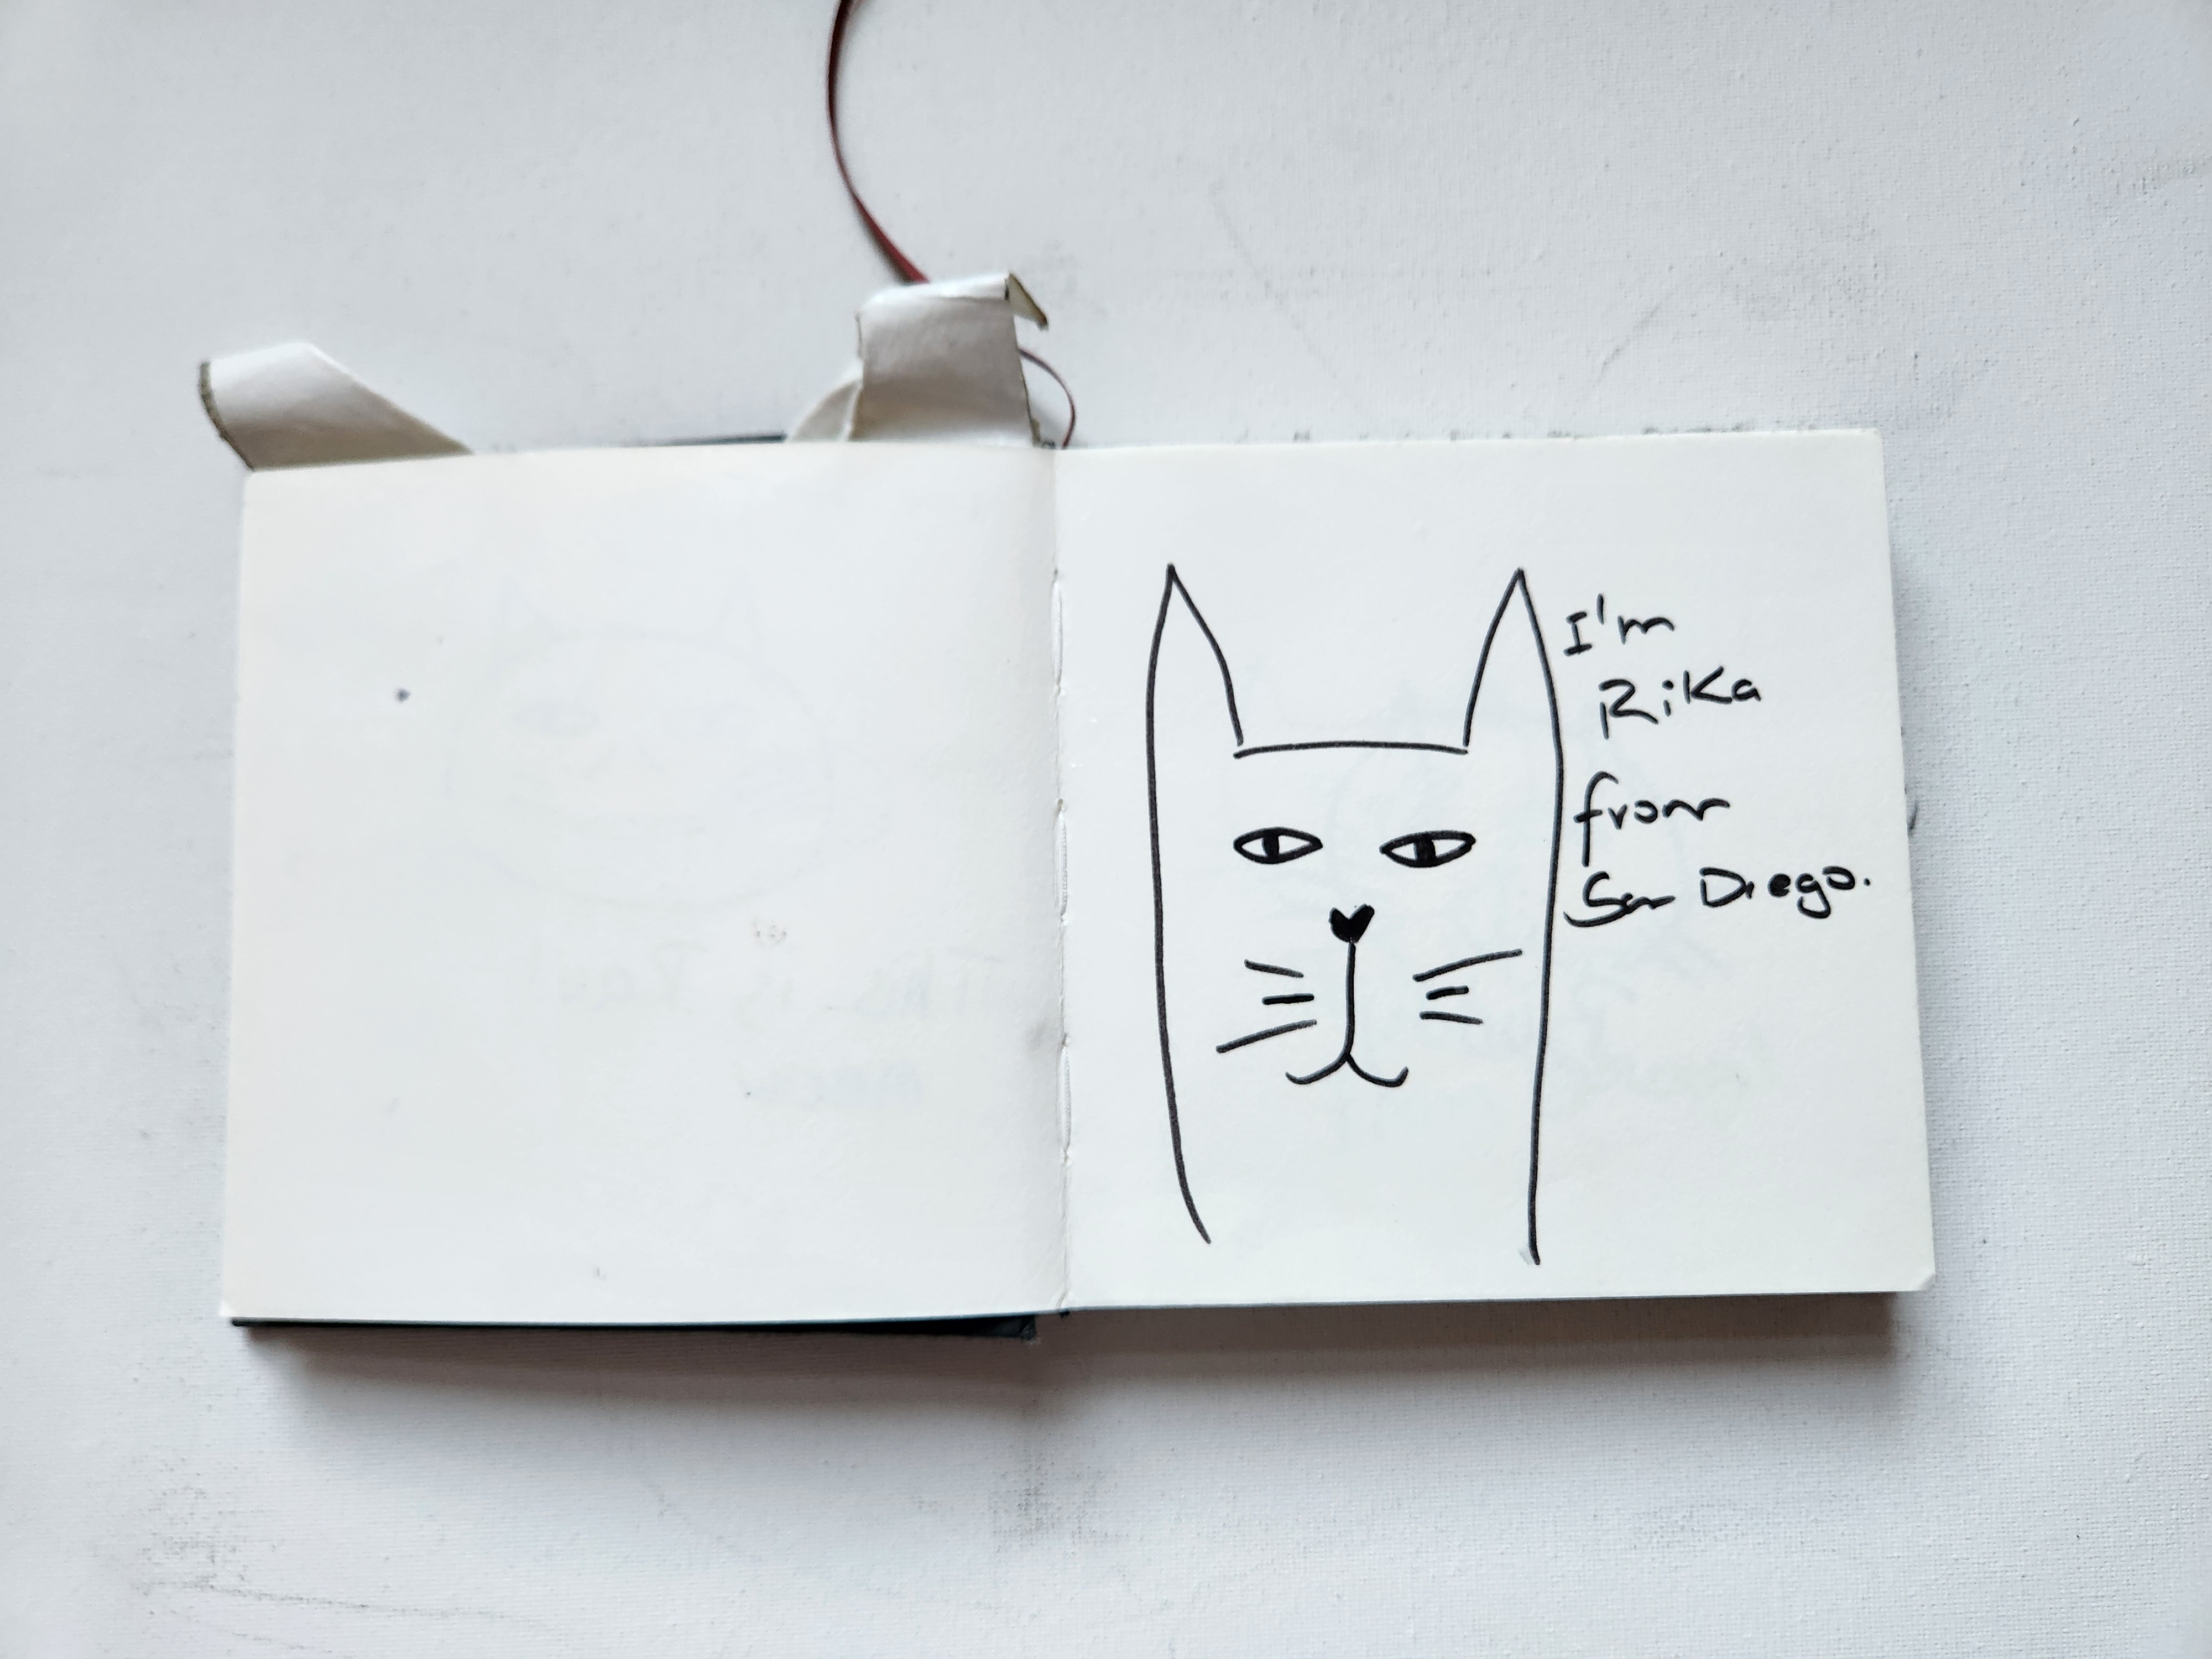 I'm
Rika
from
San Diego.